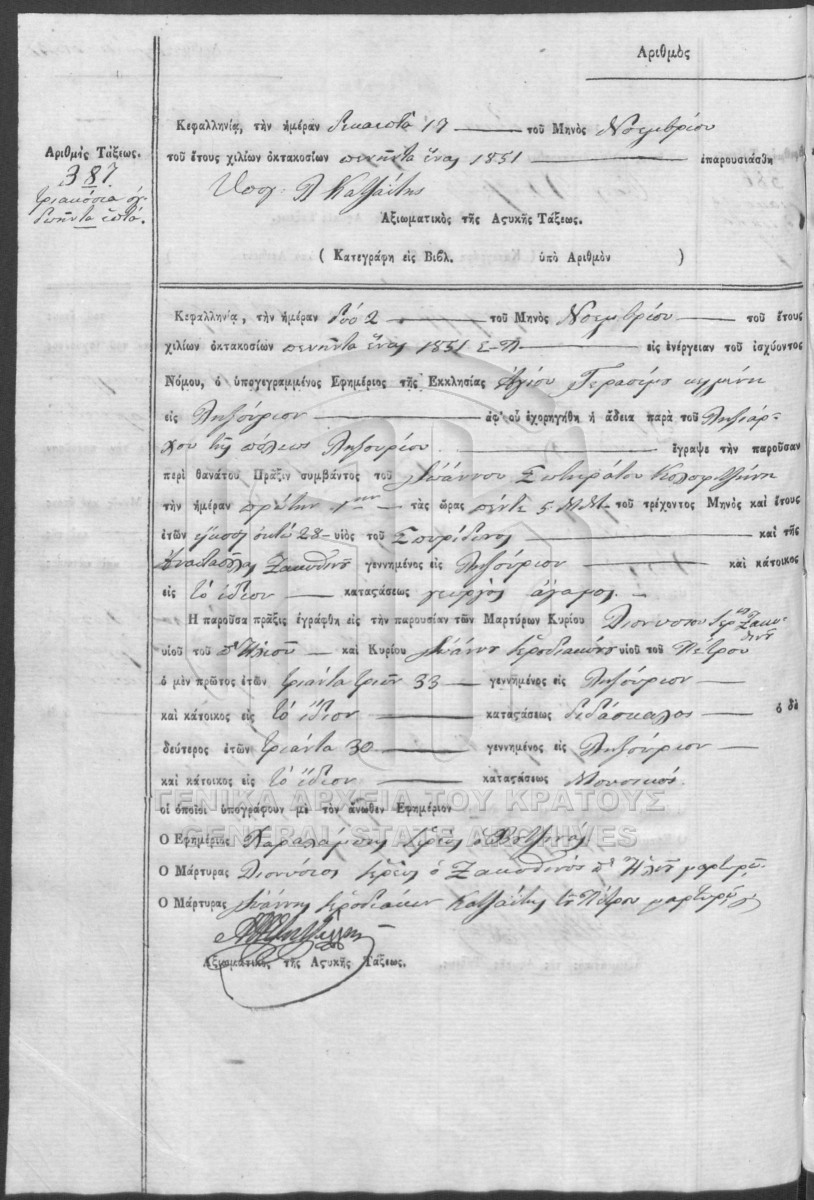 Ἀριθμὸς
Κεφαλληνίᾳ, τὴν ἡμέραν δεκαεπτὰ 17 τοῦ Μηνὸς Νοεμβρίου
τοῦ ἔτους χιλίων ὀκτακοσίων πενῆντα ἕνας 1851 ἐπαρουσιάσθη
Ἀριθμὸς Τάξεως.
387
τριακόσια ὀγ-
δοῆντα ἑπτὰ.
Ἀξιωματικὸς τῆς Ἀςυκῆς Τάξεως.
( Κατεγράφη εἰς Βιβλ. ὑπὸ Ἀριθμὸν )
Κεφαλληνίᾳ, τὴν ἡμέραν δύο 2 τοῦ Μηνὸς Νοεμβρίου τοῦ ἔτους
χιλίων ὀκτακοσίων πενῆντα ἕνας 1851 Ε.Π. εἰς ἐνέργειαν τοῦ ἰσχύοντος
Νόμου, ὁ ὑπογεγραμμένος Ἐφημέριος τῆς Ἐκκλησίας Ἁγίου Γερασίμου
εἰς Ληξούριον ἀφ' οὗ ἐχορηγήθη ἡ ἄδεια παρὰ τοῦ Ληξιάρ-
χου τῆς πόλεως Ληξουρίου ἔγραψε τὴν παροῦσαν
περὶ θανάτου Πρᾶξιν συμβάντος τοῦ Ἰωάννου Σωτηράτου
τὴν ἡμέραν πρώτην 1ην τὰς ὥρας πέντε 5 τοῦ τρέχοντος Μηνὸς καὶ ἔτους
ἐτῶν εἴκοσι ὀκτὼ 28 υἱὸς τοῦ Σπυρίδωνος καὶ τῆς
Ἀναστασίας γεννημένος εἰς Ληξούριον καὶ κάτοικος
εἰς τὸ ἴδιον καταςάσεως γεωργὸς ἄγαμος.
Ἡ παροῦσα πρᾶξις ἐγράφη εἰς τὴν παρουσίαν τῶν Μαρτύρων Κυρίου Διονυσίου
υἱοῦ τοῦ π. Ἠλιοῦ καὶ Κυρίου Ἰωάννου Ἱεροδιακόνου υἱοῦ τοῦ Πέτρου
ὁ μὲν πρῶτος ἐτῶν τριάντα τριῶν 33 γεννημένος εἰς Ληξούριον
καὶ κάτοικος εἰς τὸ ἴδιον καταςάσεως διδάσκαλος ὁ δὲ
δεύτερος ἐτῶν τριάντα 30 γεννημένος εἰς Ληξούριον
καὶ κάτοικος εἰς τὸ ἴδιον καταςάσεως Μουσικὸς
οἱ ὁποῖοι ὑπογράφουν μὲ τὸν ἄνωθεν Ἐφημέριον
ΓΕΝΙΚΑ ΑΡΧΕΙΑ ΤΟΥ ΚΡΑΤΟΥΣ
GENERAL STATE ARCHIVES
Ὁ Ἐφημέριος Χαράλαμπος ἱερεὺς
Ὁ Μάρτυρας Διονύσιος ἱερεὺς ὁ Ζακυθινὸς π. Ἠλιοῦ μαρτυρῶ
Ὁ Μάρτυρας Ἰωάννης Ἱεροδιάκων Κατζαΐτης τοῦ Πέτρου μαρτυρῶ
Ἀξιωματικὸς τῆς Ἀςυκῆς Τάξεως.